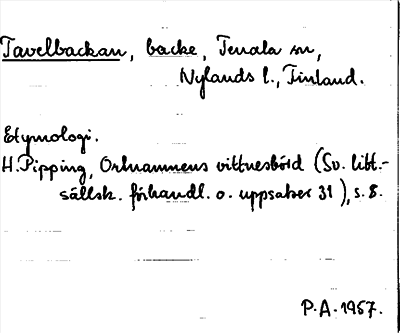 Tavelbackan, backe, Tenala sn,
Nylands l., Finland.
Etymologi.
H. Pipping, Ortnamnens vittnesbörd (Sv. litt.-
sällsk. förhandl. o. uppsatser 31), s. 8.
P.A. 1957.